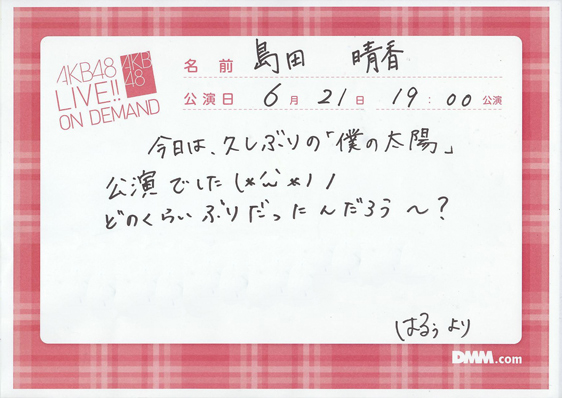 AKB48
LIVE!!
ON DEMAND
AKB
48
名前 島田 晴香
公演日 6月21日 19:00公演
今日は、久しぶりの「僕の太陽」
公演でした(*´ω`*)ノ
どのくらいぶりだったんだろう〜?
はるぅより
DMM.com